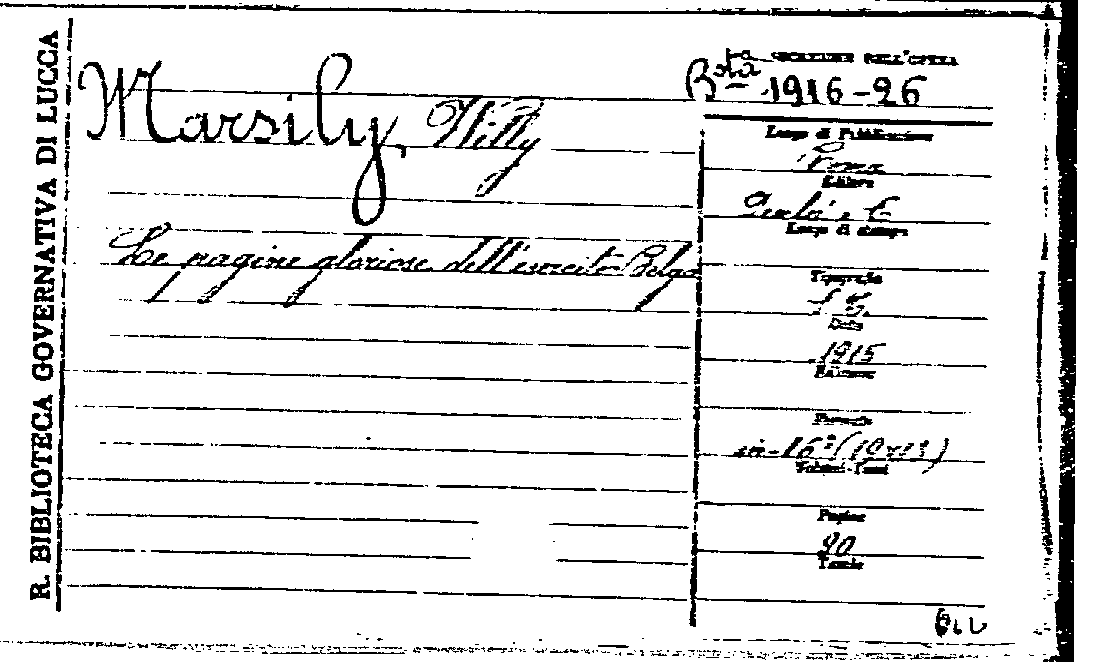 R. BIBLIOTECA GOVERNATIVA DI LUCCA
Marsily, Willy
Le pagine gloriose dell'esercito Belga
COLLOCAZIONE DELL'OPERA
Bsta 1916-26
Luogo di Pubblicazione
Roma
Editore
Luogo di stampa
Tipografia
Data
1915
Edizione
Formato
in-16°
Volumi-Tomi
Pagine
90
Tavole